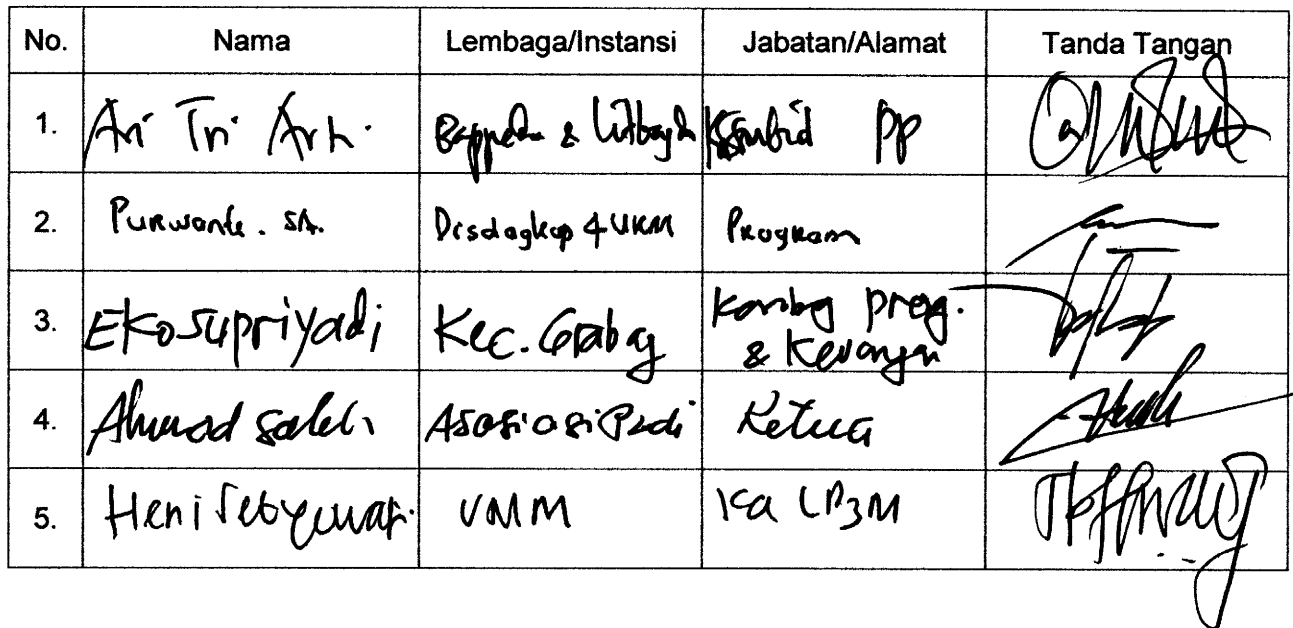 No. Nama Lembaga/Instansi Jabatan/Alamat Tanda Tangan
1. Ari Tri Bappeda & Litbangda Kasubid PP
2. Purwanto. SA. Disdagkop & UKM Program
3. Eko Supriyadi Kec. Grabag Kasubag prog.
& Keuangan
4. Ahmad Saleh Asosiasi Ketua
5. Heni Setyowati UMM Ka LP3M